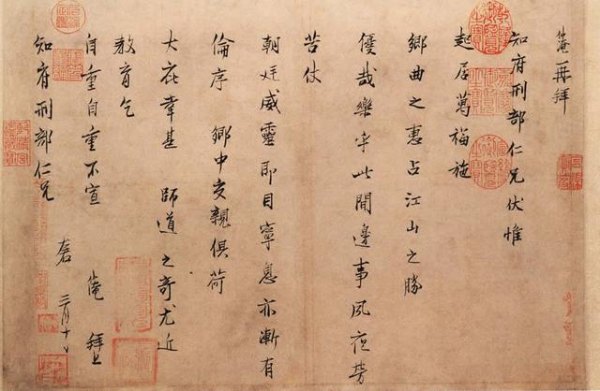 淹再拜
知府刑部仁兄伏惟
起居萬福施
鄉曲之惠占江山之勝
優哉樂乎此間邊事夙夜勞
苦仗
朝廷威靈即目寧息亦漸有
倫序 鄉中交親俱荷
大庇幸甚 師道之奇尤近
教育乞
自重自重不宣 淹 拜上
知府刑部仁兄 左右 三月十日